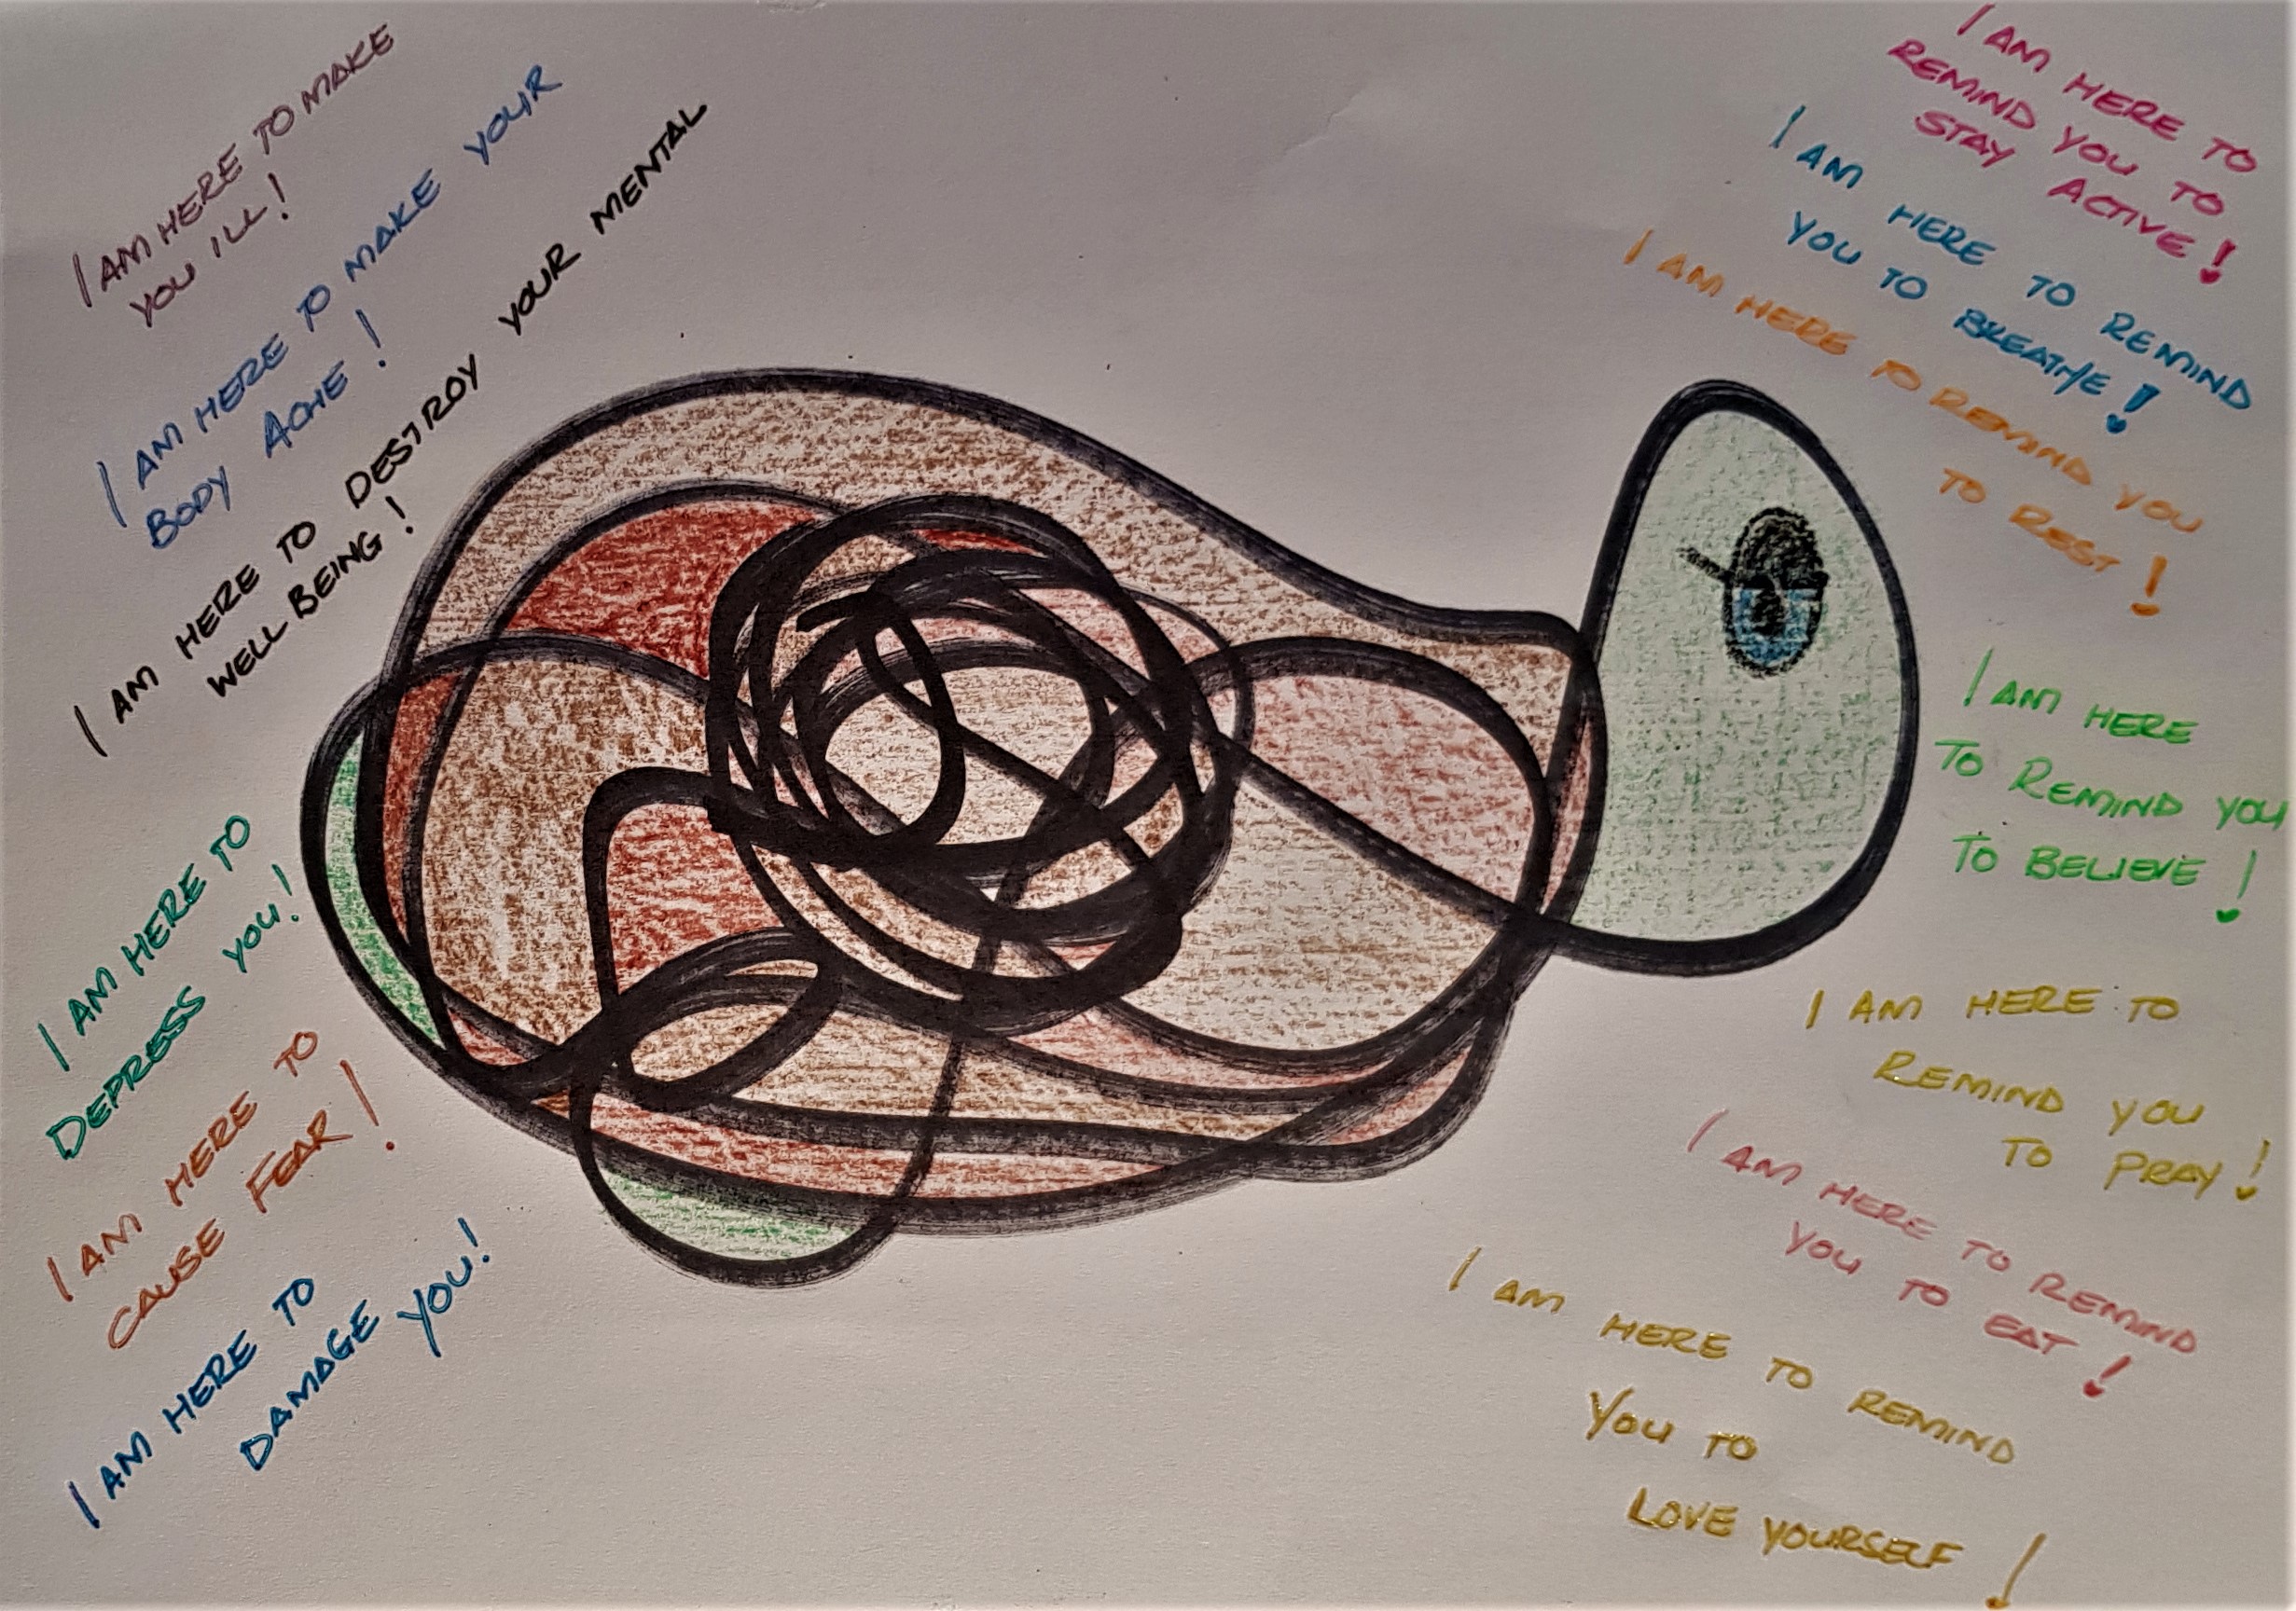 I AM HERE TO MAKE
YOU ILL!
I AM HERE TO MAKE YOUR
BODY ACHE!
I AM HERE TO DESTROY YOUR MENTAL
WELL BEING!
I AM HERE TO
DEPRESS YOU!
I AM HERE TO
CAUSE FEAR!
I AM HERE TO
DAMAGE YOU!
I AM HERE TO
REMIND YOU TO
STAY ACTIVE!
I AM HERE TO REMIND
YOU TO BREATHE!
I AM HERE TO REMIND YOU
TO REST!
I AM HERE
TO REMIND YOU
TO BELIEVE!
I AM HERE TO
REMIND YOU
TO PRAY!
I AM HERE TO REMIND
YOU TO EAT!
I AM HERE TO REMIND
YOU TO
LOVE YOURSELF!